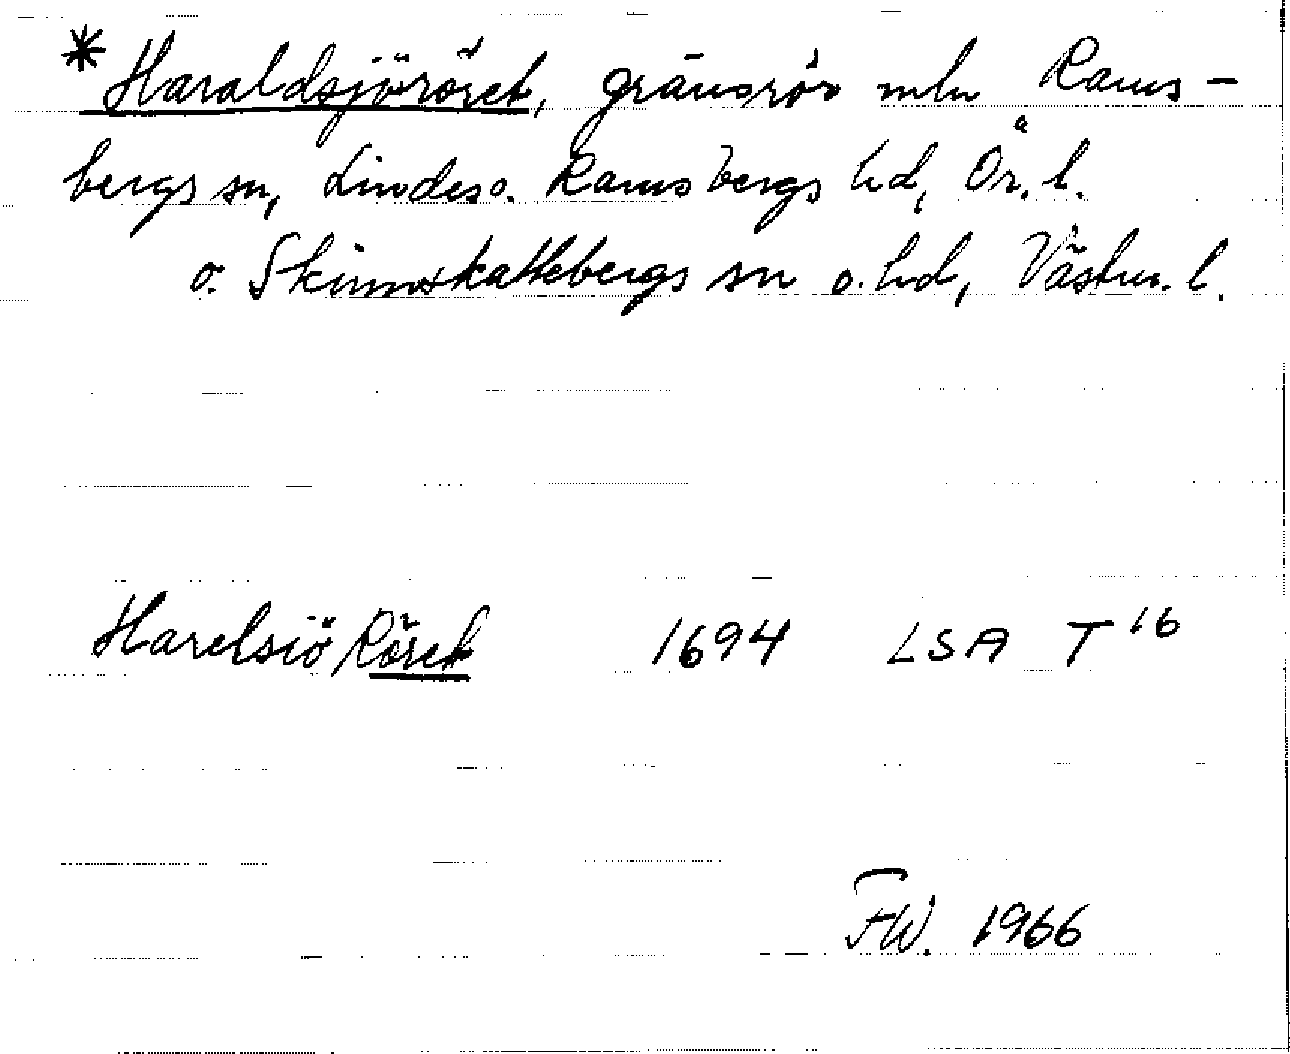 * Haraldsjöröret, gränsrör mln Rams-
bergs sn, Lindes o. Ramsbergs hd, Ör. l.
o. Skinnskattebergs sn o. hd, Västm. l.
Harelsiö Röret 1694 LSA T 16
F.W. 1966